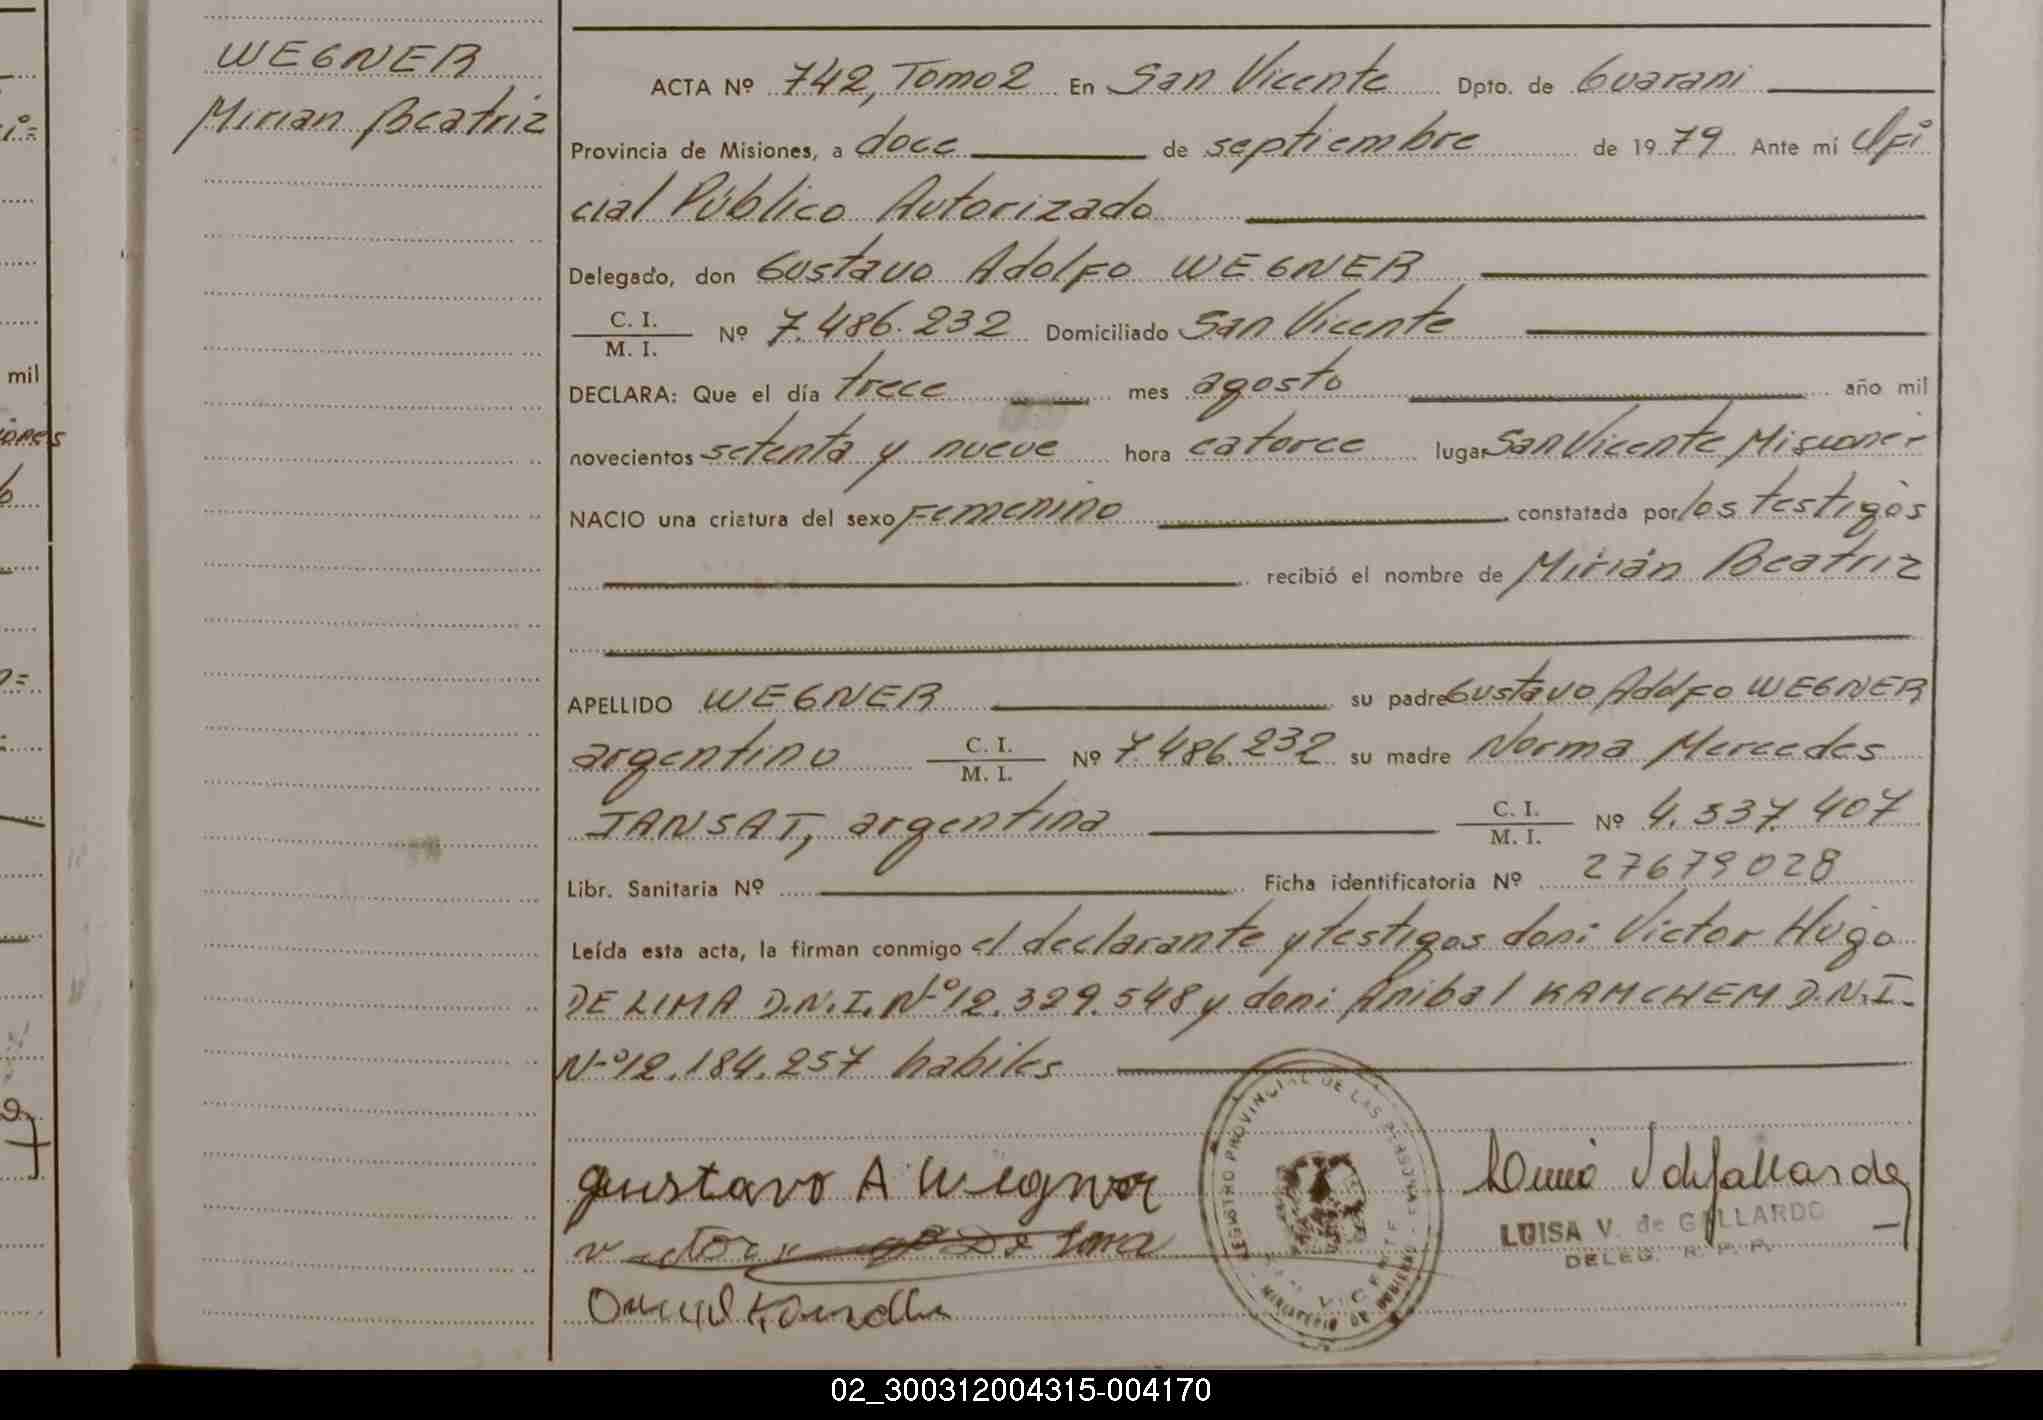 WEGNER
Mirian Beatriz
ACTA Nº 742, Tomo 2 En San Vicente Dpto. de Guarani
Provincia de Misiones, a doce de septiembre de 1979 Ante mí Ofi
cial Público Autorizado
Delegado, don Gustavo Adolfo WEGNER
C. I.
M. I. Nº 7.486.232 Domiciliado San Vicente
DECLARA: Que el día trece mes agosto año mil
novecientos setenta y nueve hora catorce lugar San Vicente Misiones
NACIO una criatura del sexo Femenino constatada por los testigos
recibió el nombre de Mirián Beatriz
APELLIDO WEGNER su padre Gustavo Adolfo WEGNER
argentino C. I.
M. I. Nº 7.486.232 su madre Norma Mercedes
JANSAT, argentina C. I.
M. I. Nº 4.537.407
Libr. Sanitaria Nº Ficha identificatoria Nº 27679028
Leída esta acta, la firman conmigo el declarante y testigos don: Victor Hugo
DE LIMA D.N.I. Nº 12.329.548 y don: Anibal KAMCHEM D.N.I.
Nº 12.184.257 habiles
gustavo A Wegner
REGISTRO PROVINCIAL DE LAS PERSONAS
MINISTERIO DE GOBIERNO
LUISA V. de GALLARDO
DELEG. R. P. P.
mil
02_300312004315-004170